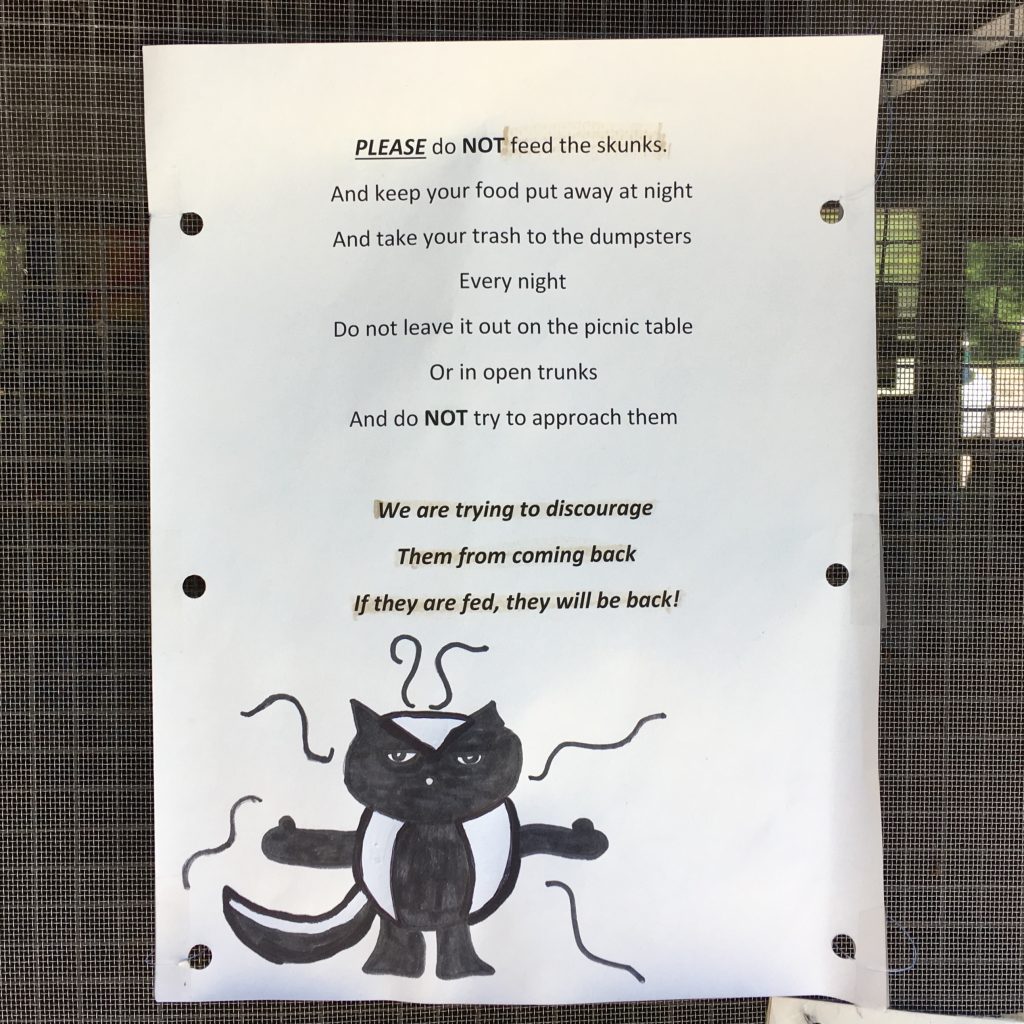 PLEASE do NOT feed the skunks.
And keep your food put away at night
And take your trash to the dumpsters
Every night
Do not leave it out on the picnic table
Or in open trunks
And do NOT try to approach them
We are trying to discourage
Them from coming back
If they are fed, they will be back!